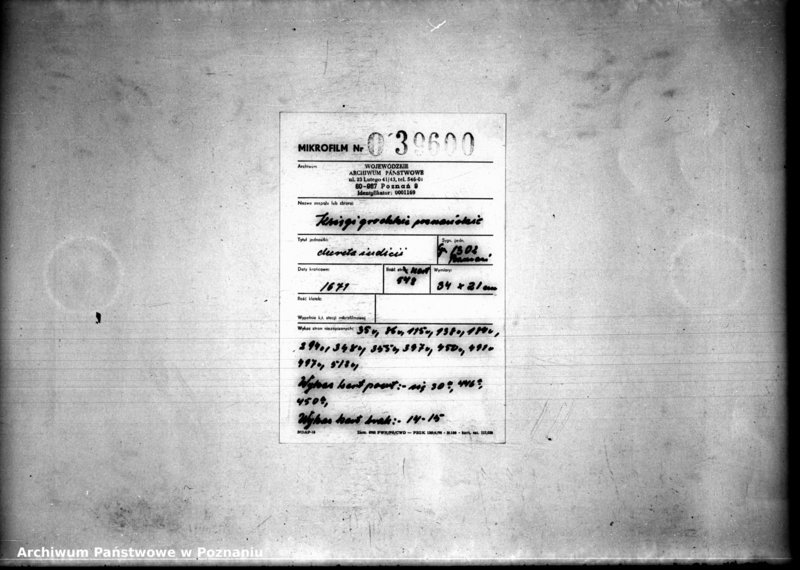 MIKROFILM Nr 039600
Archiwum: WOJEWÓDZKIE
ARCHIWUM PAŃSTWOWE
ul. 23 Lutego 41/43, tel. 546-01
60-967 Poznań 9
Identyfikator: 0001169
Nazwa zespołu lub zbioru:
Księgi grodzkie poznańskie
Tytuł jednostki: Sygn. jedn.
decreta iudicii Gr. 1302
Poznań
Daty krańcowe: Ilość kart Wymiary:
1671 548 34 x 21 cm
Ilość klatek:
Wypełnia k.t. stacji mikrofilmowej
Wykaz stron niezapisanych: 35v, 86v, 115v, 138v, 184v,
294v, 348v, 355v, 397v, 450v, 491v
497v, 512v,
Wykaz kart powt:- się 30a, 446a,
450a,
Wykaz kart brak:- 14-15
Archiwum Państwowe w Poznaniu